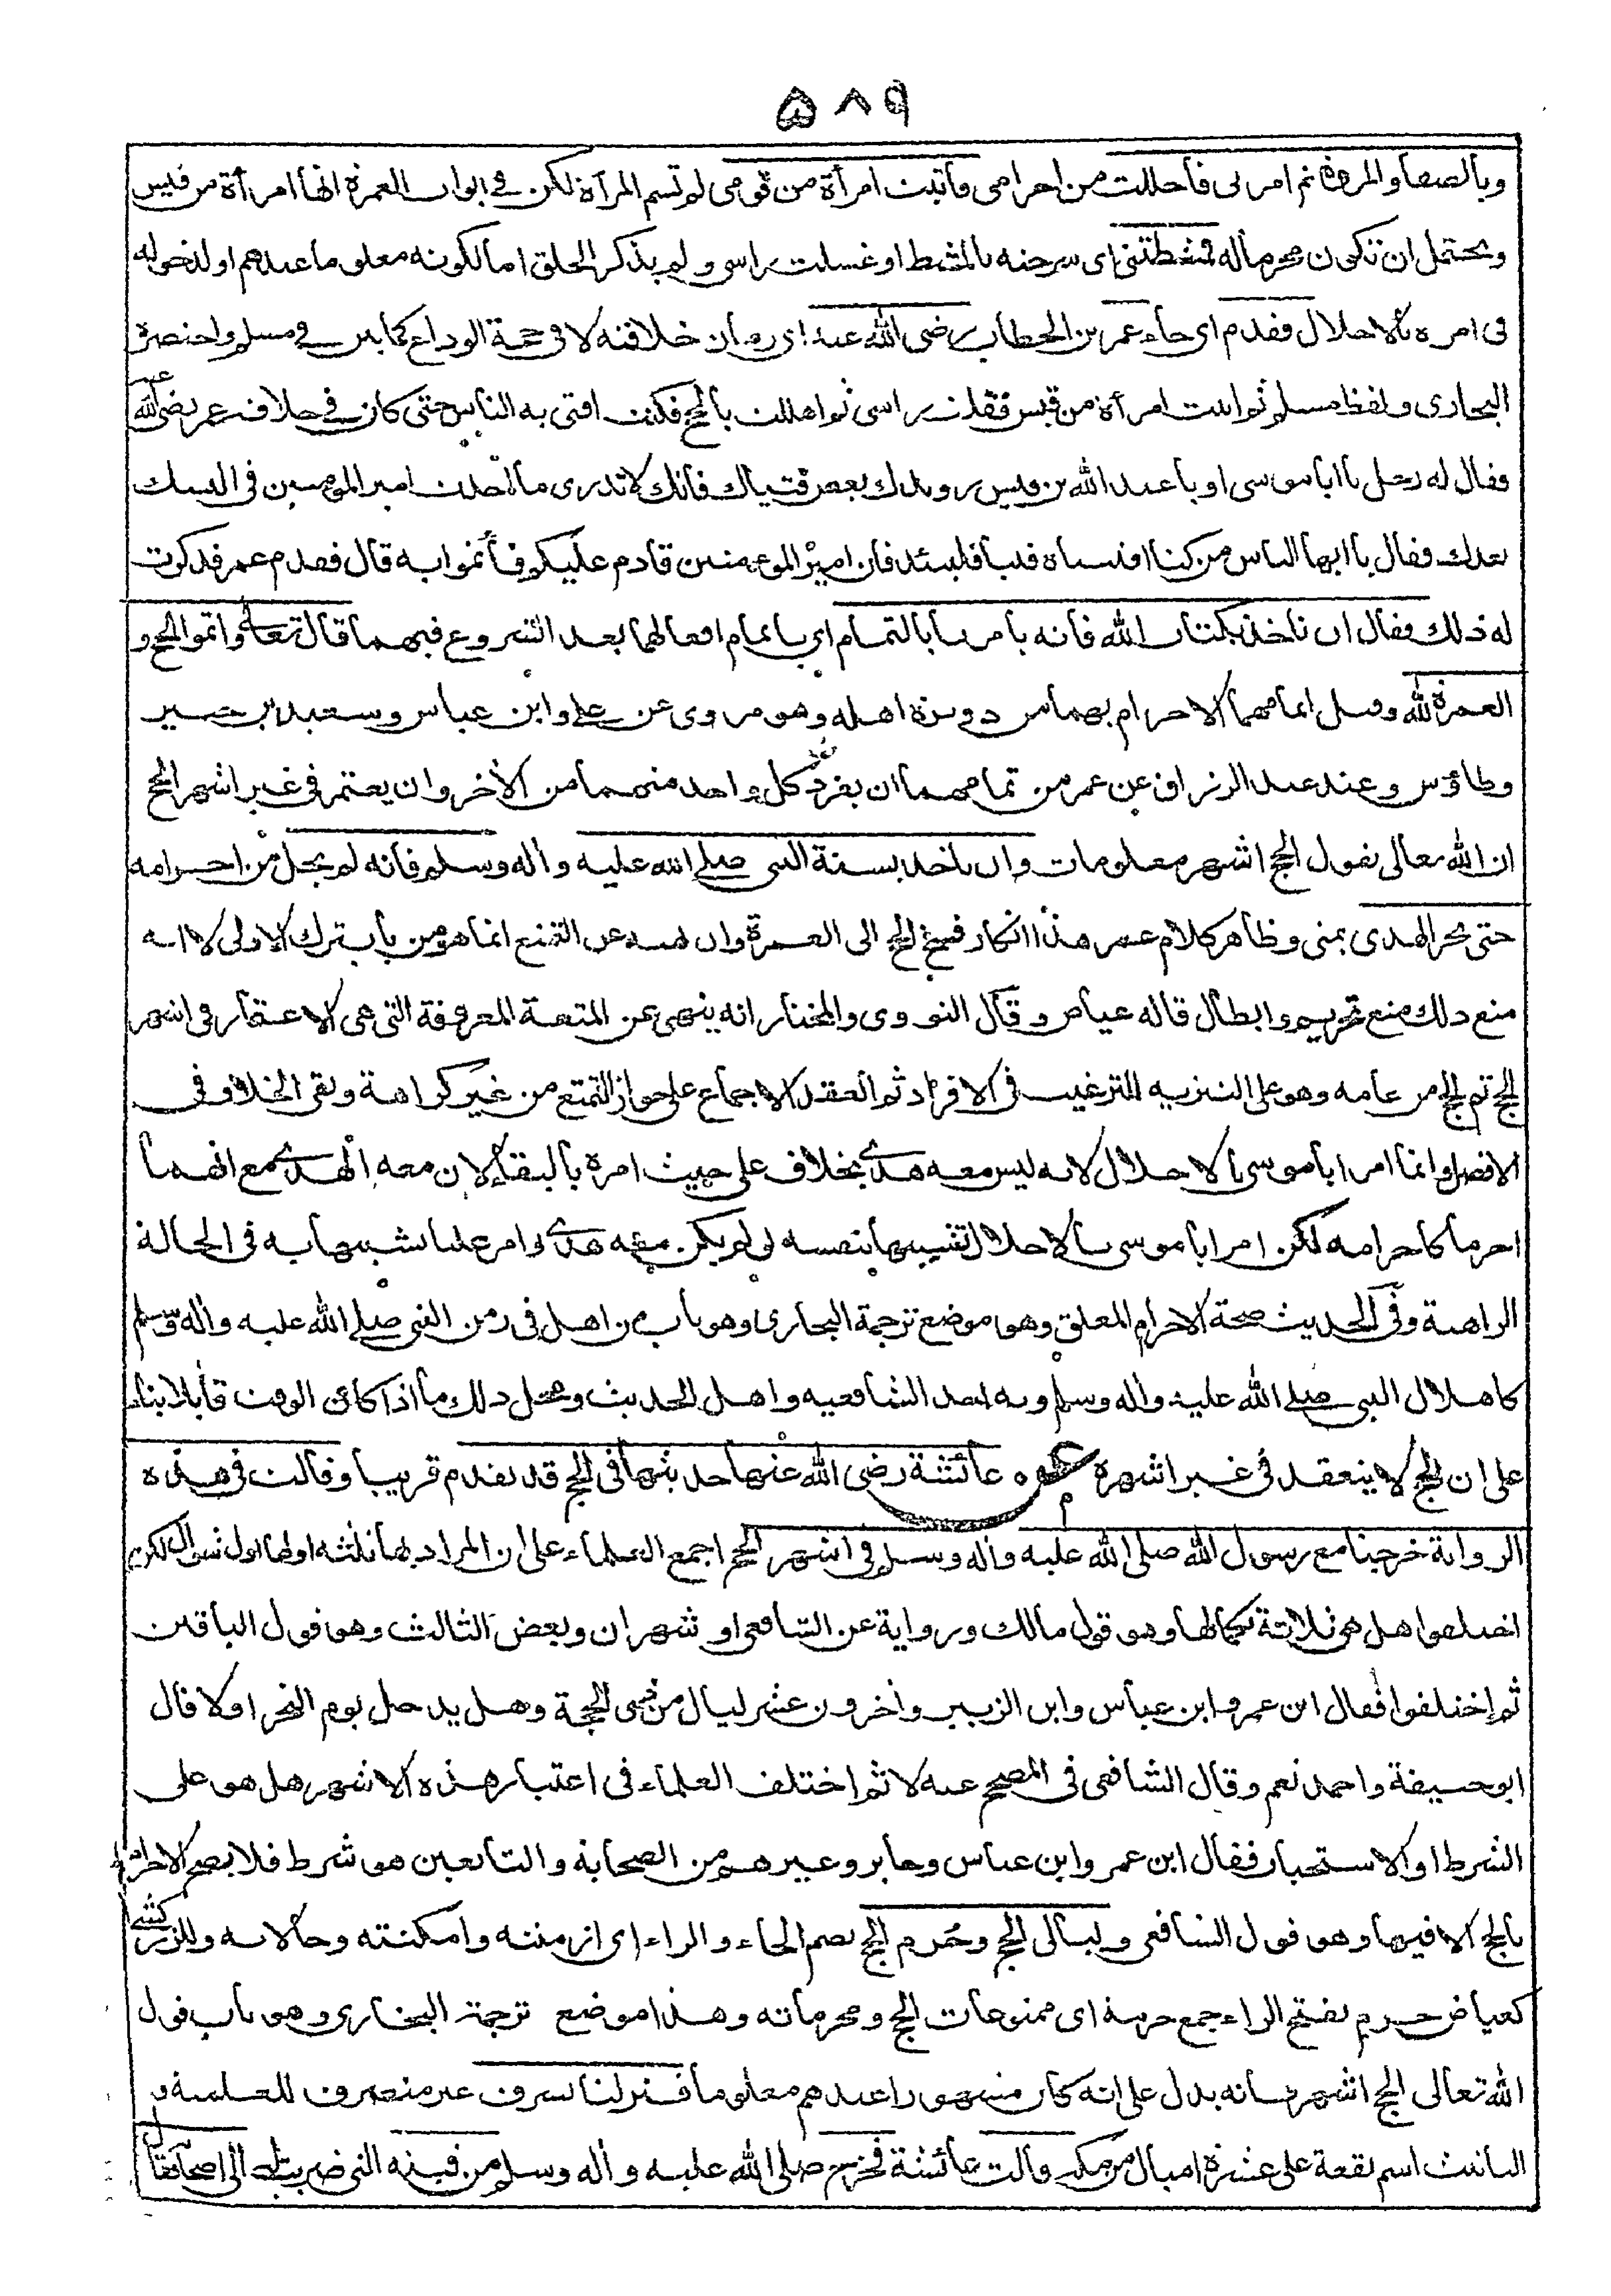 ٥٨٩
وبالصفا والمروة ثم امرنى فأحللت من احرامى فأتيت امرأة من قومى لم تسم المرأة لكن فى ابواب العمرة انها امرأة من قيس
ويحتمل ان تكون محرما له فمشطتنى اى سرحته بالمشط او غسلت راسى و لم يذكر الحلق اما لكونه معلوما عندهم او لدخوله
فى امره بالاحلال فقدم اى جاء عمر بن الخطاب رضى الله عنه اى زمان خلافته لا فى حجة الوداع كما بين فى مسلم واختصره
البخارى ولفظ مسلم ثم اتيت امرأة من قيس ففلت راسى ثم اهللت بالحج فكنت افتى به الناس حتى كان فى خلافة عمر رضى الله عنه
فقال له رجل يا ابا موسى او يا عبد الله بن قيس رويدك بعض فتياك فانك لا تدرى ما احدث امير المومنين فى النسك
بعدك فقال يا ايها الناس من كنا افتيناه فتيا فليتئد فان امير المومنين قادم عليكم فأتموا به قال فقدم عمر فذكرت
له ذلك فقال ان ناخذ بكتاب الله فانه يامرنا بالتمام اى باتمام افعالهما بعد الشروع فيهما قال تعالى واتموا الحج و
العمرة لله وقيل اتمامهما الاحرام بهما من دويرة اهله وهو مروى عن على وابن عباس وسعيد بن جبير
وطاؤس وعند عبد الرزاق عن عمر من تمامهما ان يفرد كل واحد منهما من الأخر وان يعتمر فى غير اشهر الحج
ان الله تعالى يقول الحج اشهر معلومات وان ناخذ بسنة النبى صلى الله عليه واله وسلم فانه لم يحل من احرامه
حتى نحر الهدى بمنى وظاهر كلام عمر هذا انكار فسخ الحج الى العمرة وان نهيه عن التمتع انما هو من باب ترك الاولى لا انه
منع ذلك منع تحريم وابطال قاله عياض وقال النووى والمختار انه ينهى عن المتعة المعروفة التى هى الاعتمار فى اشهر
الحج ثم الحج من عامه وهو على التنزيه للترغيب فى الافراد ثم انعقد الاجماع على جواز التمتع من غير كراهة وبقى الخلاف فى
الافضل وانما امر ابا موسى بالاحلال لانه ليس معه هدى بخلاف على حيث امره بالبقاء لان معه الهدى مع انهما
احرما كاحرامه لكن امر ابا موسى بالاحلال تشبيها بنفسه لو لم يكن معه هدى وامر عليا تشبيها به فى الحالة
الراهنة وفى الحديث صحة الاحرام المعلق وهو موضع ترجمة البخارى وهو باب من اهل فى زمن النبى صلى الله عليه واله وسلم
كاهلال النبى صلى الله عليه واله وسلم وبه اخذ الشافعيه واهل الحديث ومحل ذلك ما اذا كان الوقت قابلا بناء
على ان الحج لا ينعقد فى غير اشهره عائشة رضى الله عنها حديثها فى الحج قد تقدم قريبا وقالت فى هذه
الرواية خرجنا مع رسول الله صلى الله عليه واله وسلم فى اشهر الحج اجمع العلماء على ان المراد بها ثلثه اولها اول شوال لكن
اختلفوا هل هى ثلاثة بكمالها وهو قول مالك ورواية عن الشافعى او شهران وبعض الثالث وهو قول الباقين
ثم اختلفوا فقال ابن عمرو ابن عباس وابن الزبير وأخرون عشر ليال من ذى الحجة وهل يدخل يوم النحر اولا قال
ابو حنيفة واحمد نعم وقال الشافعى فى المصحح عنه لا ثم اختلف العلماء فى اعتبار هذه الاشهر هل هو على
الشرط او الاستحباب فقال ابن عمر وابن عباس وجابر وغيرهم من الصحابة والتابعين هو شرط فلا يصح الاحرام
بالحج الا فيها وهو قول الشافعى وليالى الحج وحُرم الحج بضم الحاء والراء اى ازمنته وامكنته وحالاته وللزركشى
كعياض حرم بفتح الراء جمع حرمة اى ممنوعات الحج ومحرماته وهذا موضع ترجمة البخارى وهو باب قول
الله تعالى الحج اشهر فانه يدل على انه كان مشهورا عندهم معلوما فنزلنا بسرف غير منصرف للعلمية و
التانيث اسم بقعة على عشرة اميال من مكة قالت عائشة فخرج صلى الله عليه واله وسلم من قبته التى ضربت له الى اصحابه فقال